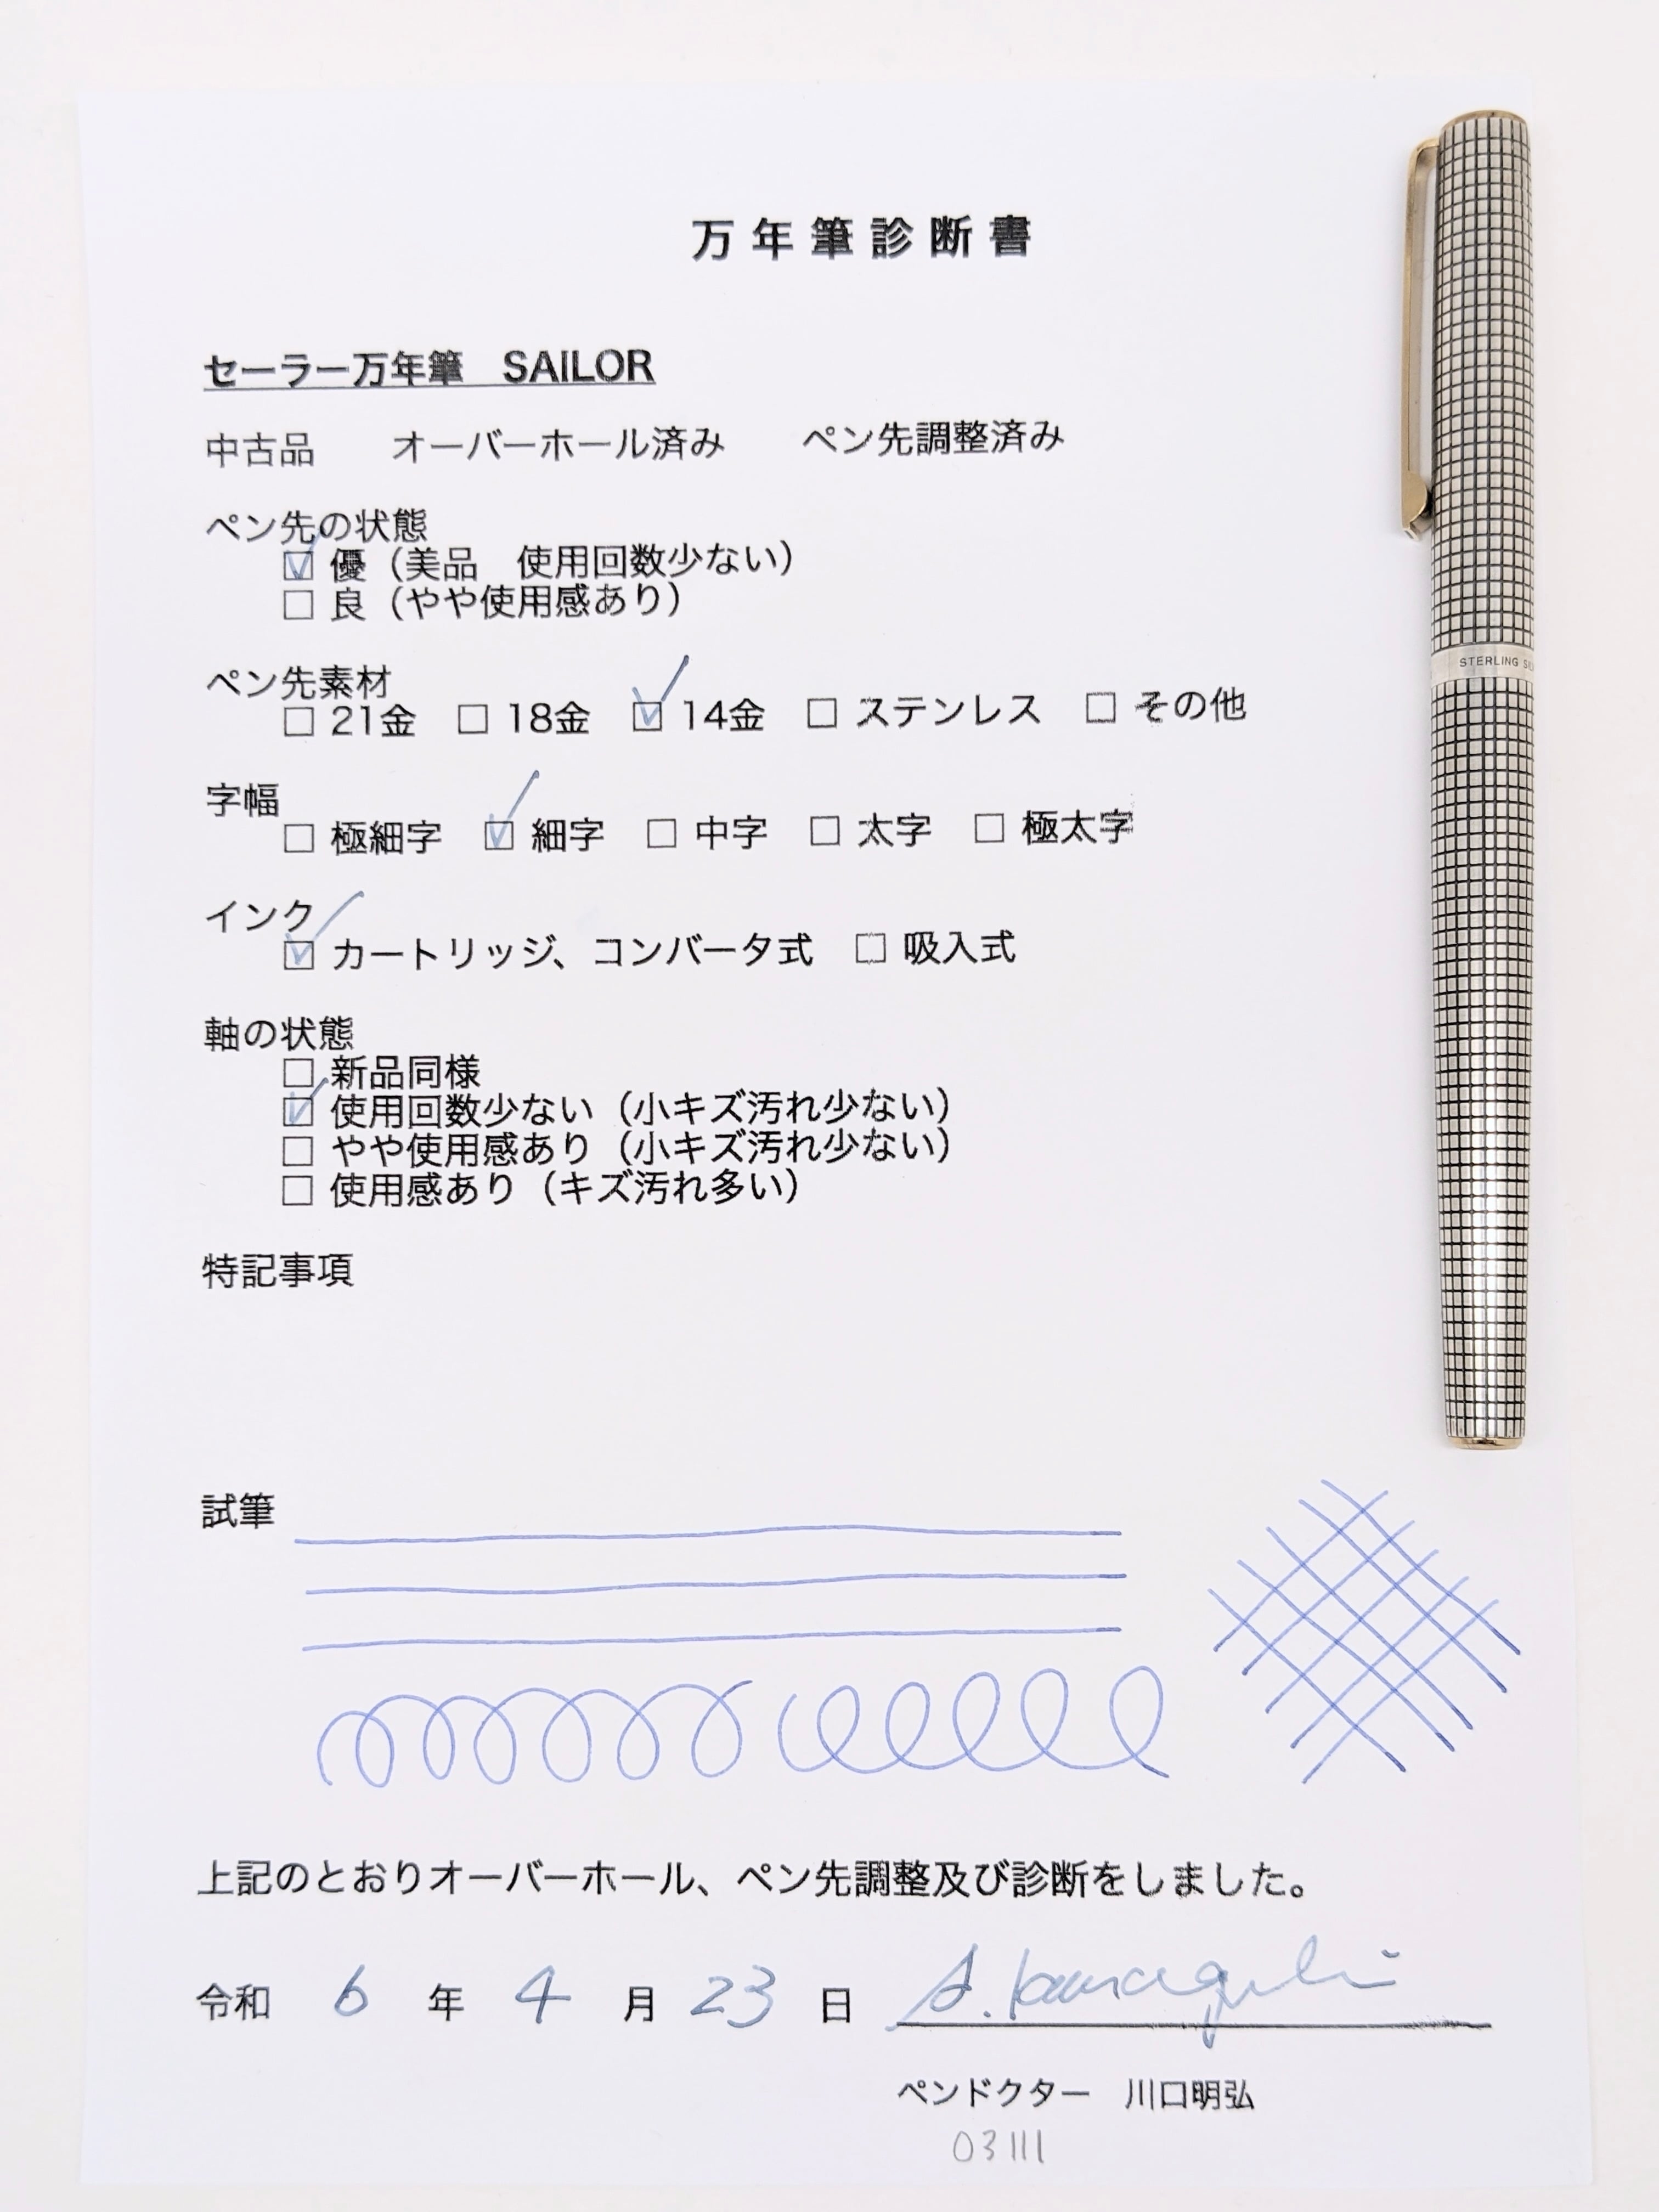 万年筆診断書
セーラー万年筆　SAILOR
中古品　オーバーホール済み　ペン先調整済み
ペン先の状態
☑ 優（美品　使用回数少ない）
□ 良（やや使用感あり）
ペン先素材
□ 21金　□ 18金　☑ 14金　□ ステンレス　□ その他
字幅
□ 極細字　☑ 細字　□ 中字　□ 太字　□ 極太字
インク
☑ カートリッジ、コンバータ式　□ 吸入式
軸の状態
□ 新品同様
☑ 使用回数少ない（小キズ汚れ少ない）
□ やや使用感あり（小キズ汚れ少ない）
□ 使用感あり（キズ汚れ多い）
特記事項
試筆
上記のとおりオーバーホール、ペン先調整及び診断をしました。
令和 6 年 4 月 23 日 A. Kawaguchi
ペンドクター　川口明弘
03111
STERLING